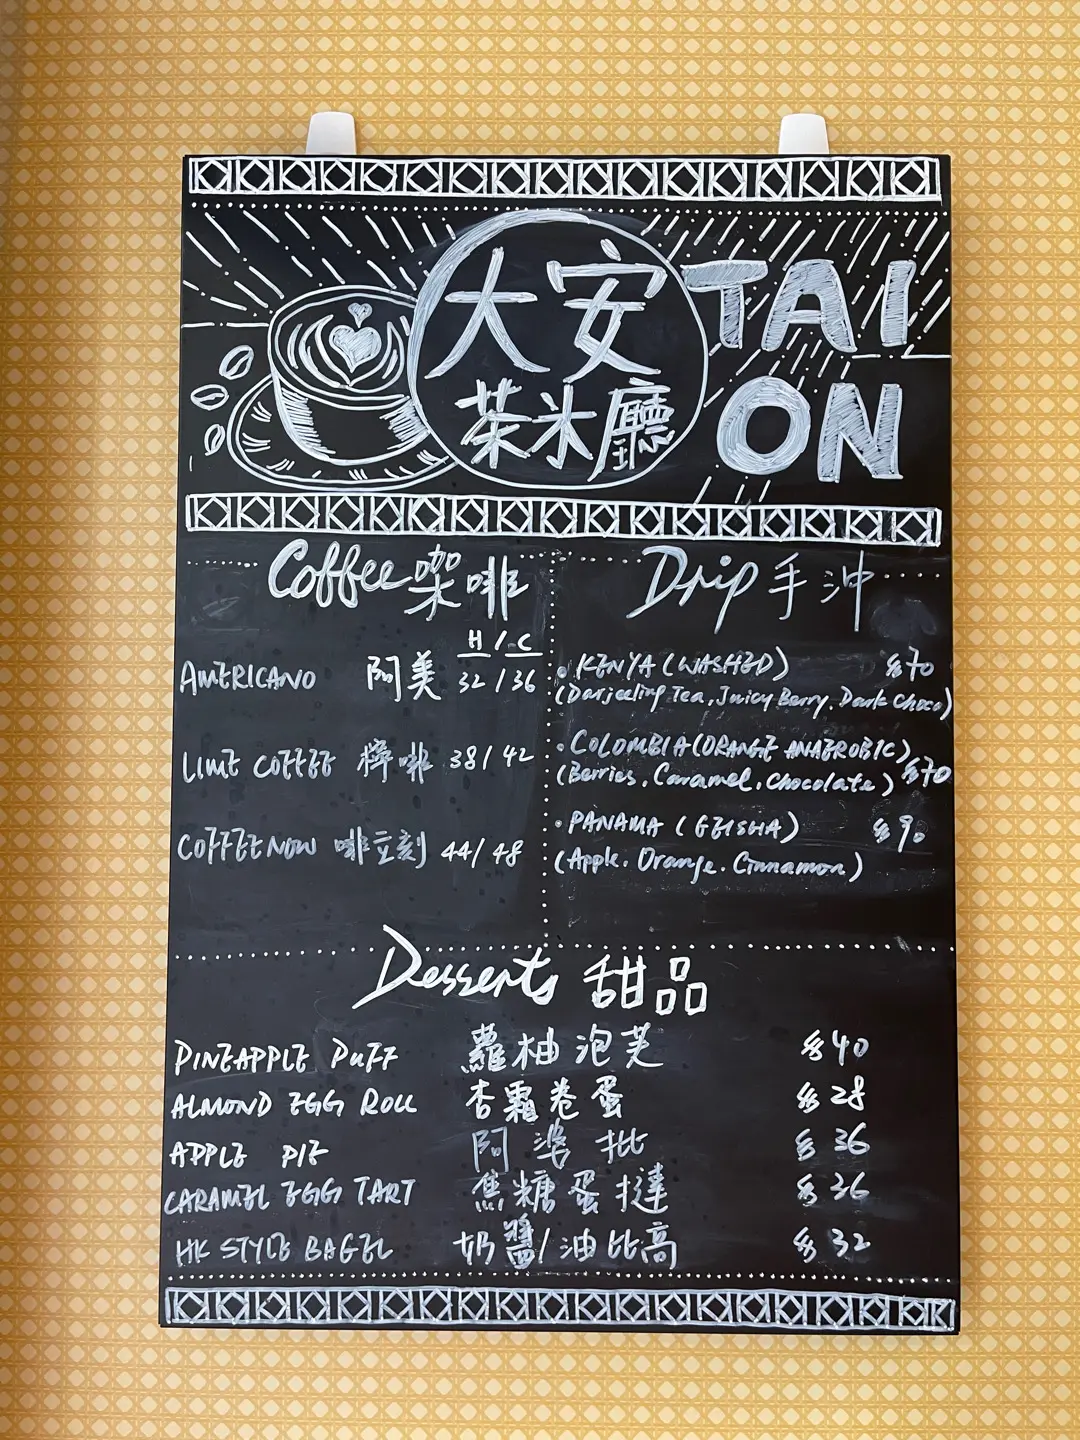 大安
茶冰廳
TAI
ON
Coffee 咖啡
H / C
AMERICANO 阿美 32 / 36
LIME COFFEE 檸啡 38 / 42
COFFEE NOW 啡立刻 44 / 48
Drip 手沖
• KENYA (WASHED) $70
(Darjeeling Tea, Juicy Berry, Dark Choco)
• COLOMBIA (ORANGE ANAEROBIC)
(Berries, Caramel, Chocolate) $70
• PANAMA (GEISHA) $90
(Apple, Orange, Cinnamon)
Desserts 甜品
PINEAPPLE PUFF 蘿柚泡芙 $40
ALMOND EGG ROLL 杏霜卷蛋 $28
APPLE PIE 阿婆批 $36
CARAMEL EGG TART 焦糖蛋撻 $36
HK STYLE BAGEL 奶醬/油比高 $32